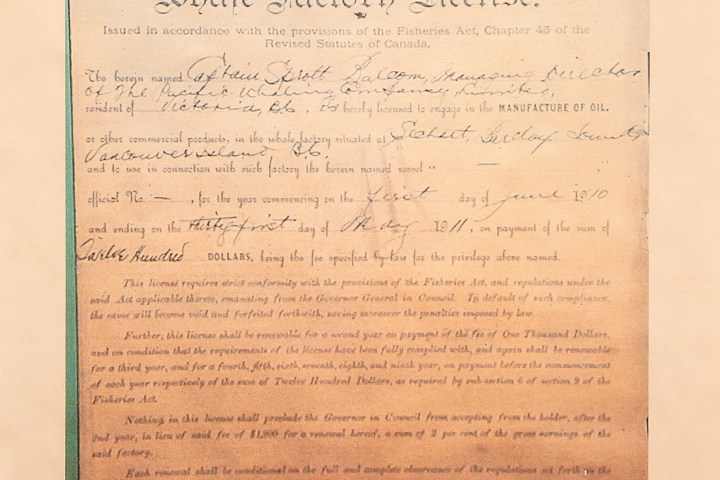 Whale Factory License.
Issued in accordance with the provisions of the Fisheries Act, Chapter 45 of the
Revised Statutes of Canada.
The herein named Captain Sprott Balcom, Managing Director
of The Pacific Whaling Company, Limited,
resident of Victoria, B.C. is hereby licensed to engage in the MANUFACTURE OF OIL,
or other commercial products, in the whale factory situated at Sechart, Barclay Sound,
Vancouver Island B.C.
and to use in connection with such factory the herein named vessel —
official No — , for the year commencing on the first day of June 1910
and ending on the thirty first day of May 1911, on payment of the sum of
Twelve Hundred DOLLARS, being the fee specified by law for the privilege above named.
This license requires strict conformity with the provisions of the Fisheries Act, and regulations under the
said Act applicable thereto, emanating from the Governor General in Council. In default of such compliance,
the same will become void and forfeited forthwith, saving moreover the penalties imposed by law.
Further, this license shall be renewable for a second year on payment of the fee of One Thousand Dollars,
and on condition that the requirements of the license have been fully complied with, and again shall be renewable
for a third year, and for a fourth, fifth, sixth, seventh, eighth, and ninth year, on payment before the commencement
of each year respectively of the sum of Twelve Hundred Dollars, as required by sub-section 6 of section 9 of the
Fisheries Act.
Nothing in this license shall preclude the Governor in Council from accepting from the holder, after the
2nd year, in lieu of said fee of $1,200 for a renewal hereof, a sum of 2 per cent of the gross earnings of the
said factory.
Each renewal shall be conditional on the full and complete observance of the regulations set forth in the